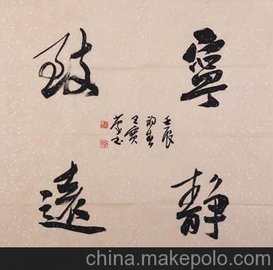 寧靜
致遠
壬辰
china.makepolo.com